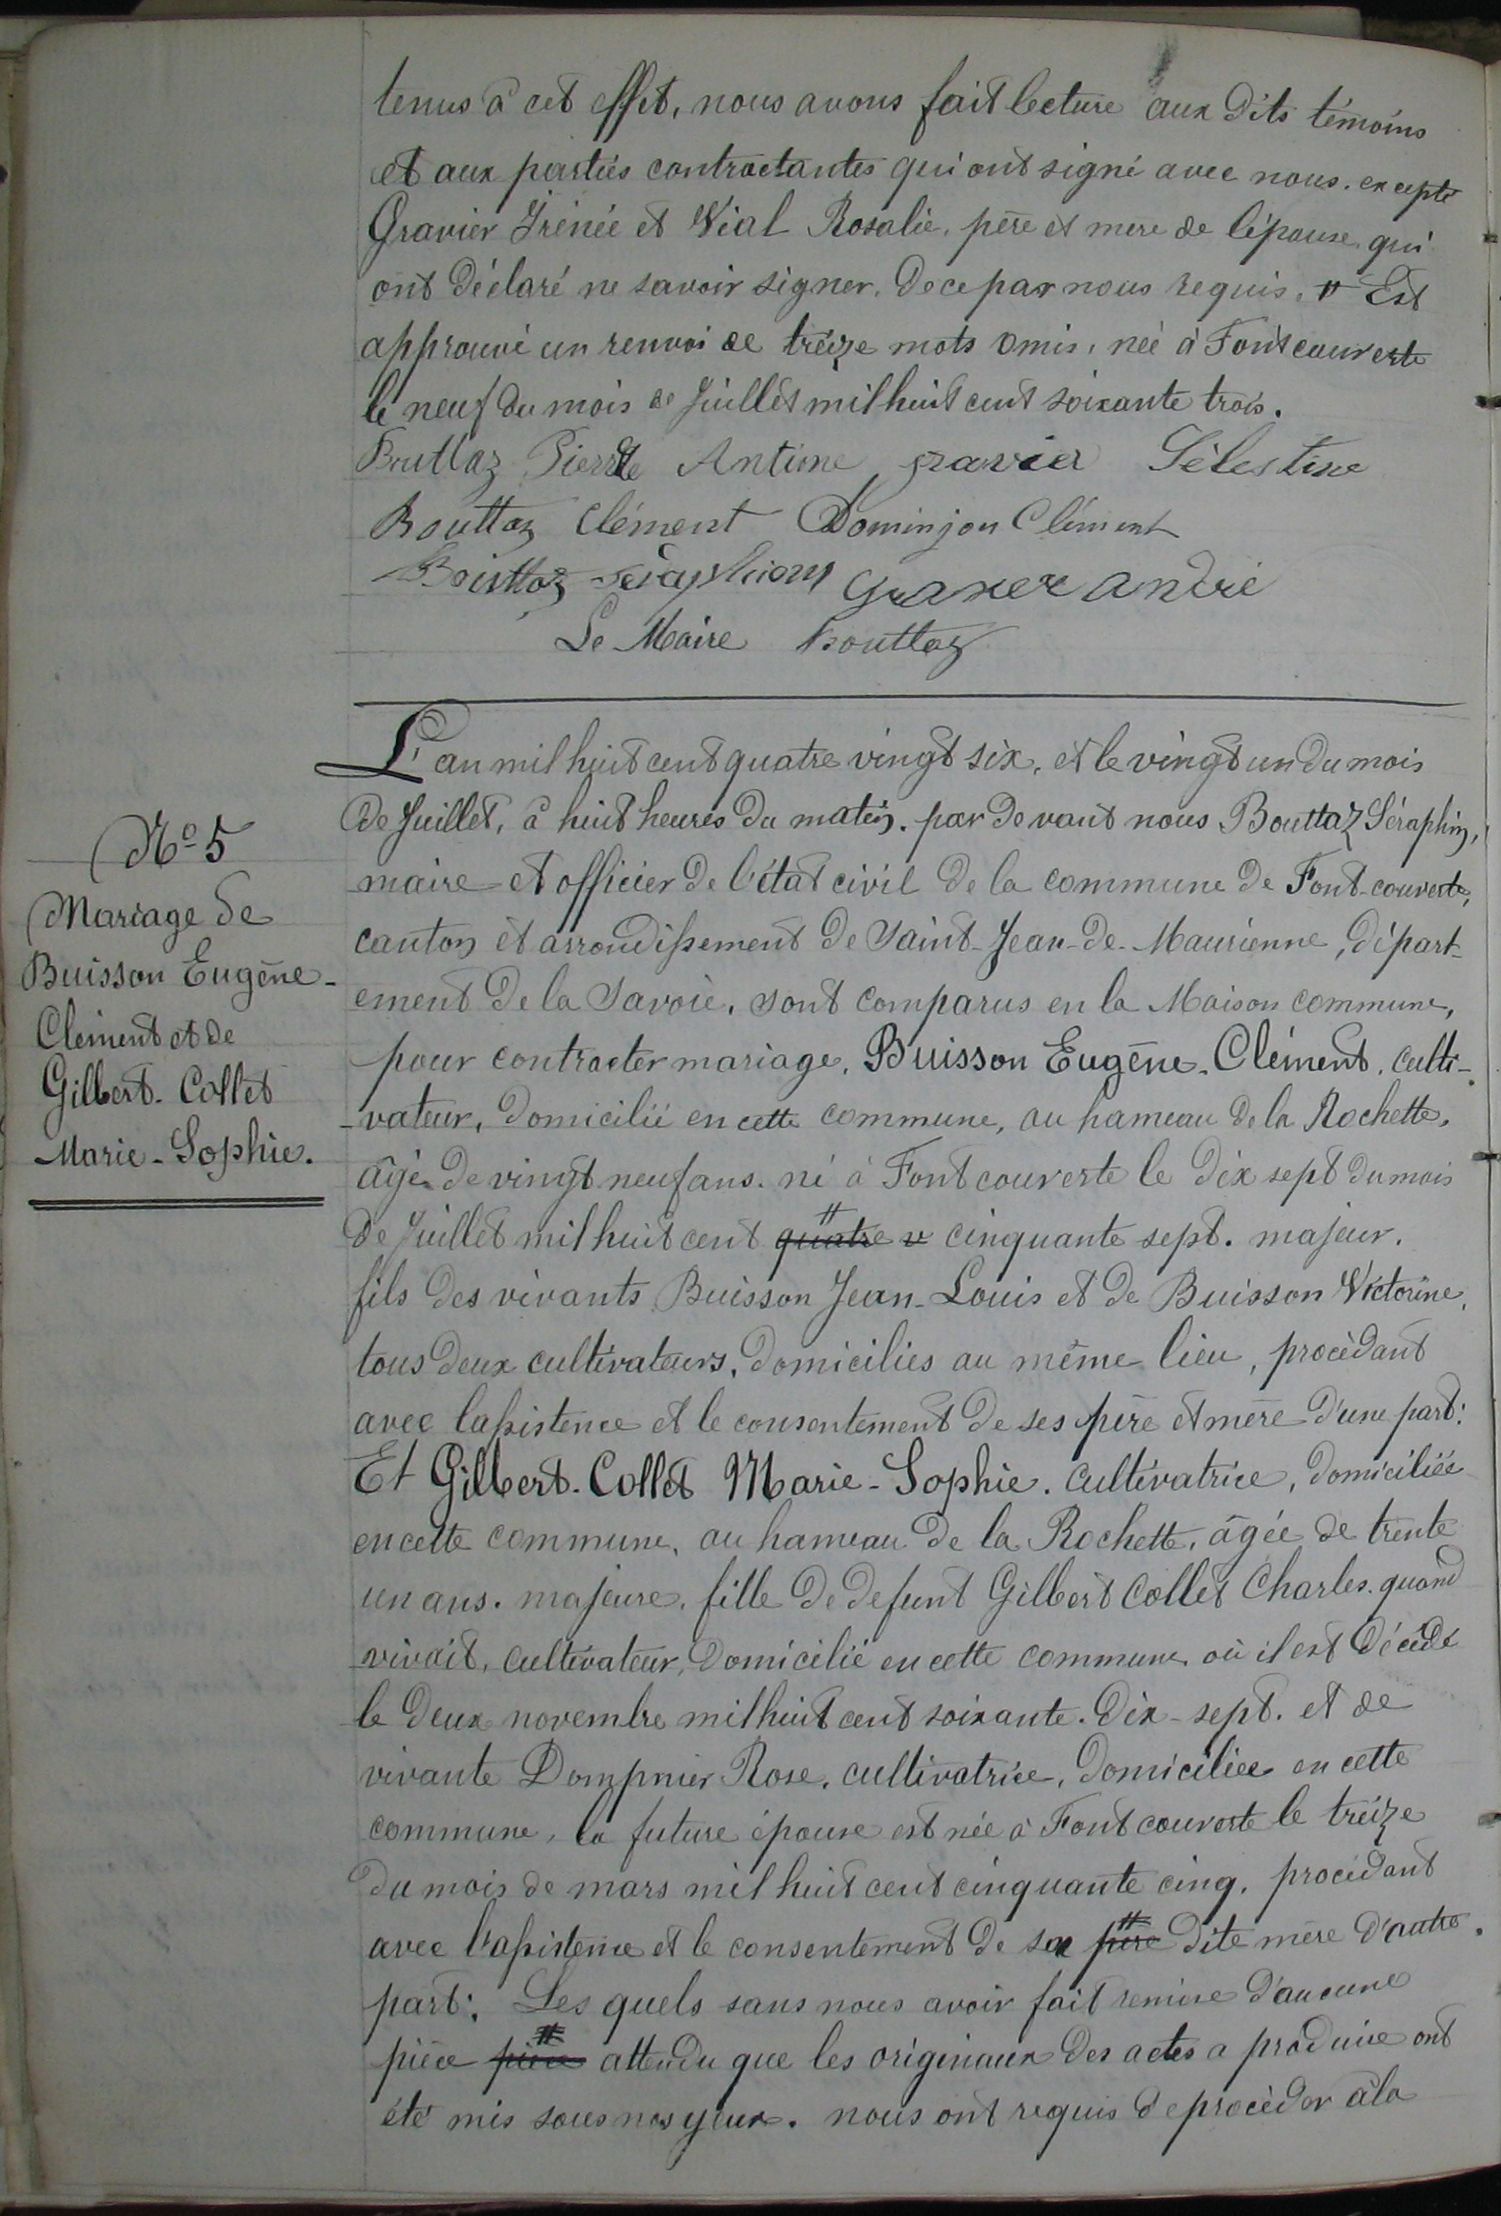 tenus à cet effet, nous avons fait lecture aux dits témoins
et aux parties contractantes qui ont signé avec nous. excepté
Gravier Irénée et Vial Rosalie, père et mère de l'épouse, qui
ont déclaré ne savoir signer. De ce par nous requis. # Est
approuvé un renvoi de treize mots omis, née à Fontcouverte
le neuf du mois de Juillet mil huit cent soixante trois.
Bouttaz Pierre Antime gravier Sélestine
Bouttaz Clément Dominjon Clément
Bouttaz Séraphion Graver andré
Le Maire Bouttaz
L'an mil huit cent quatre vingt six, et le vingt un du mois
de Juillet, à huit heures du matin. par devant nous Bouttaz Séraphin,
maire et officier de l'état civil de la commune de Font-couverte,
canton et arrondissement de Saint-Jean-de-Maurienne, départ-
ement de la Savoie, sont comparus en la Maison commune,
pour contracter mariage, Buisson Eugène-Clément, culti-
-vateur, domicilié en cette commune, au hameau de la Rochette,
âgé de vingt neuf ans. né à Fontcouverte le dix sept du mois
#
de Juillet mil huit cent quatre v cinquante sept. majeur.
fils des vivants Buisson Jean-Louis et de Buisson Victorine,
tous deux cultivateurs, domiciliés au même lieu, procédant
avec l'assistence et le consentement de ses père et mère d'une part:
Et Gilbert-Collet Marie-Sophie. cultivatrice, domiciliée
en cette commune, au hameau de la Rochette, âgée de trente
un ans. majeure, fille de defunt Gilbert Collet Charles. quand
vivait, cultivateur, domicilié en cette commune où il est décédé
le deux novembre mil huit cent soixante-dix-sept. et de
vivante Dompnier Rose, cultivatrice, domiciliée en cette
commune, la future épouse est née à Fontcouverte le treize
du mois de mars mil huit cent cinquante cinq, procédant
#
avec l'assistence et le consentement de sa père dite mère d'autre
part: Les quels sans nous avoir fait remise d'aucune
#
pièce pièce attendu que les originaux des actes a produire ont
été mis sous nos yeux. nous ont requis de procéder à la
No 5
Mariage de
Buisson Eugène-
Clément et de
Gilbert-Collet
Marie-Sophie.